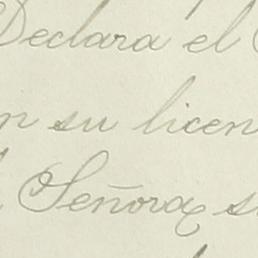 Declara el
en su licen
Señora s